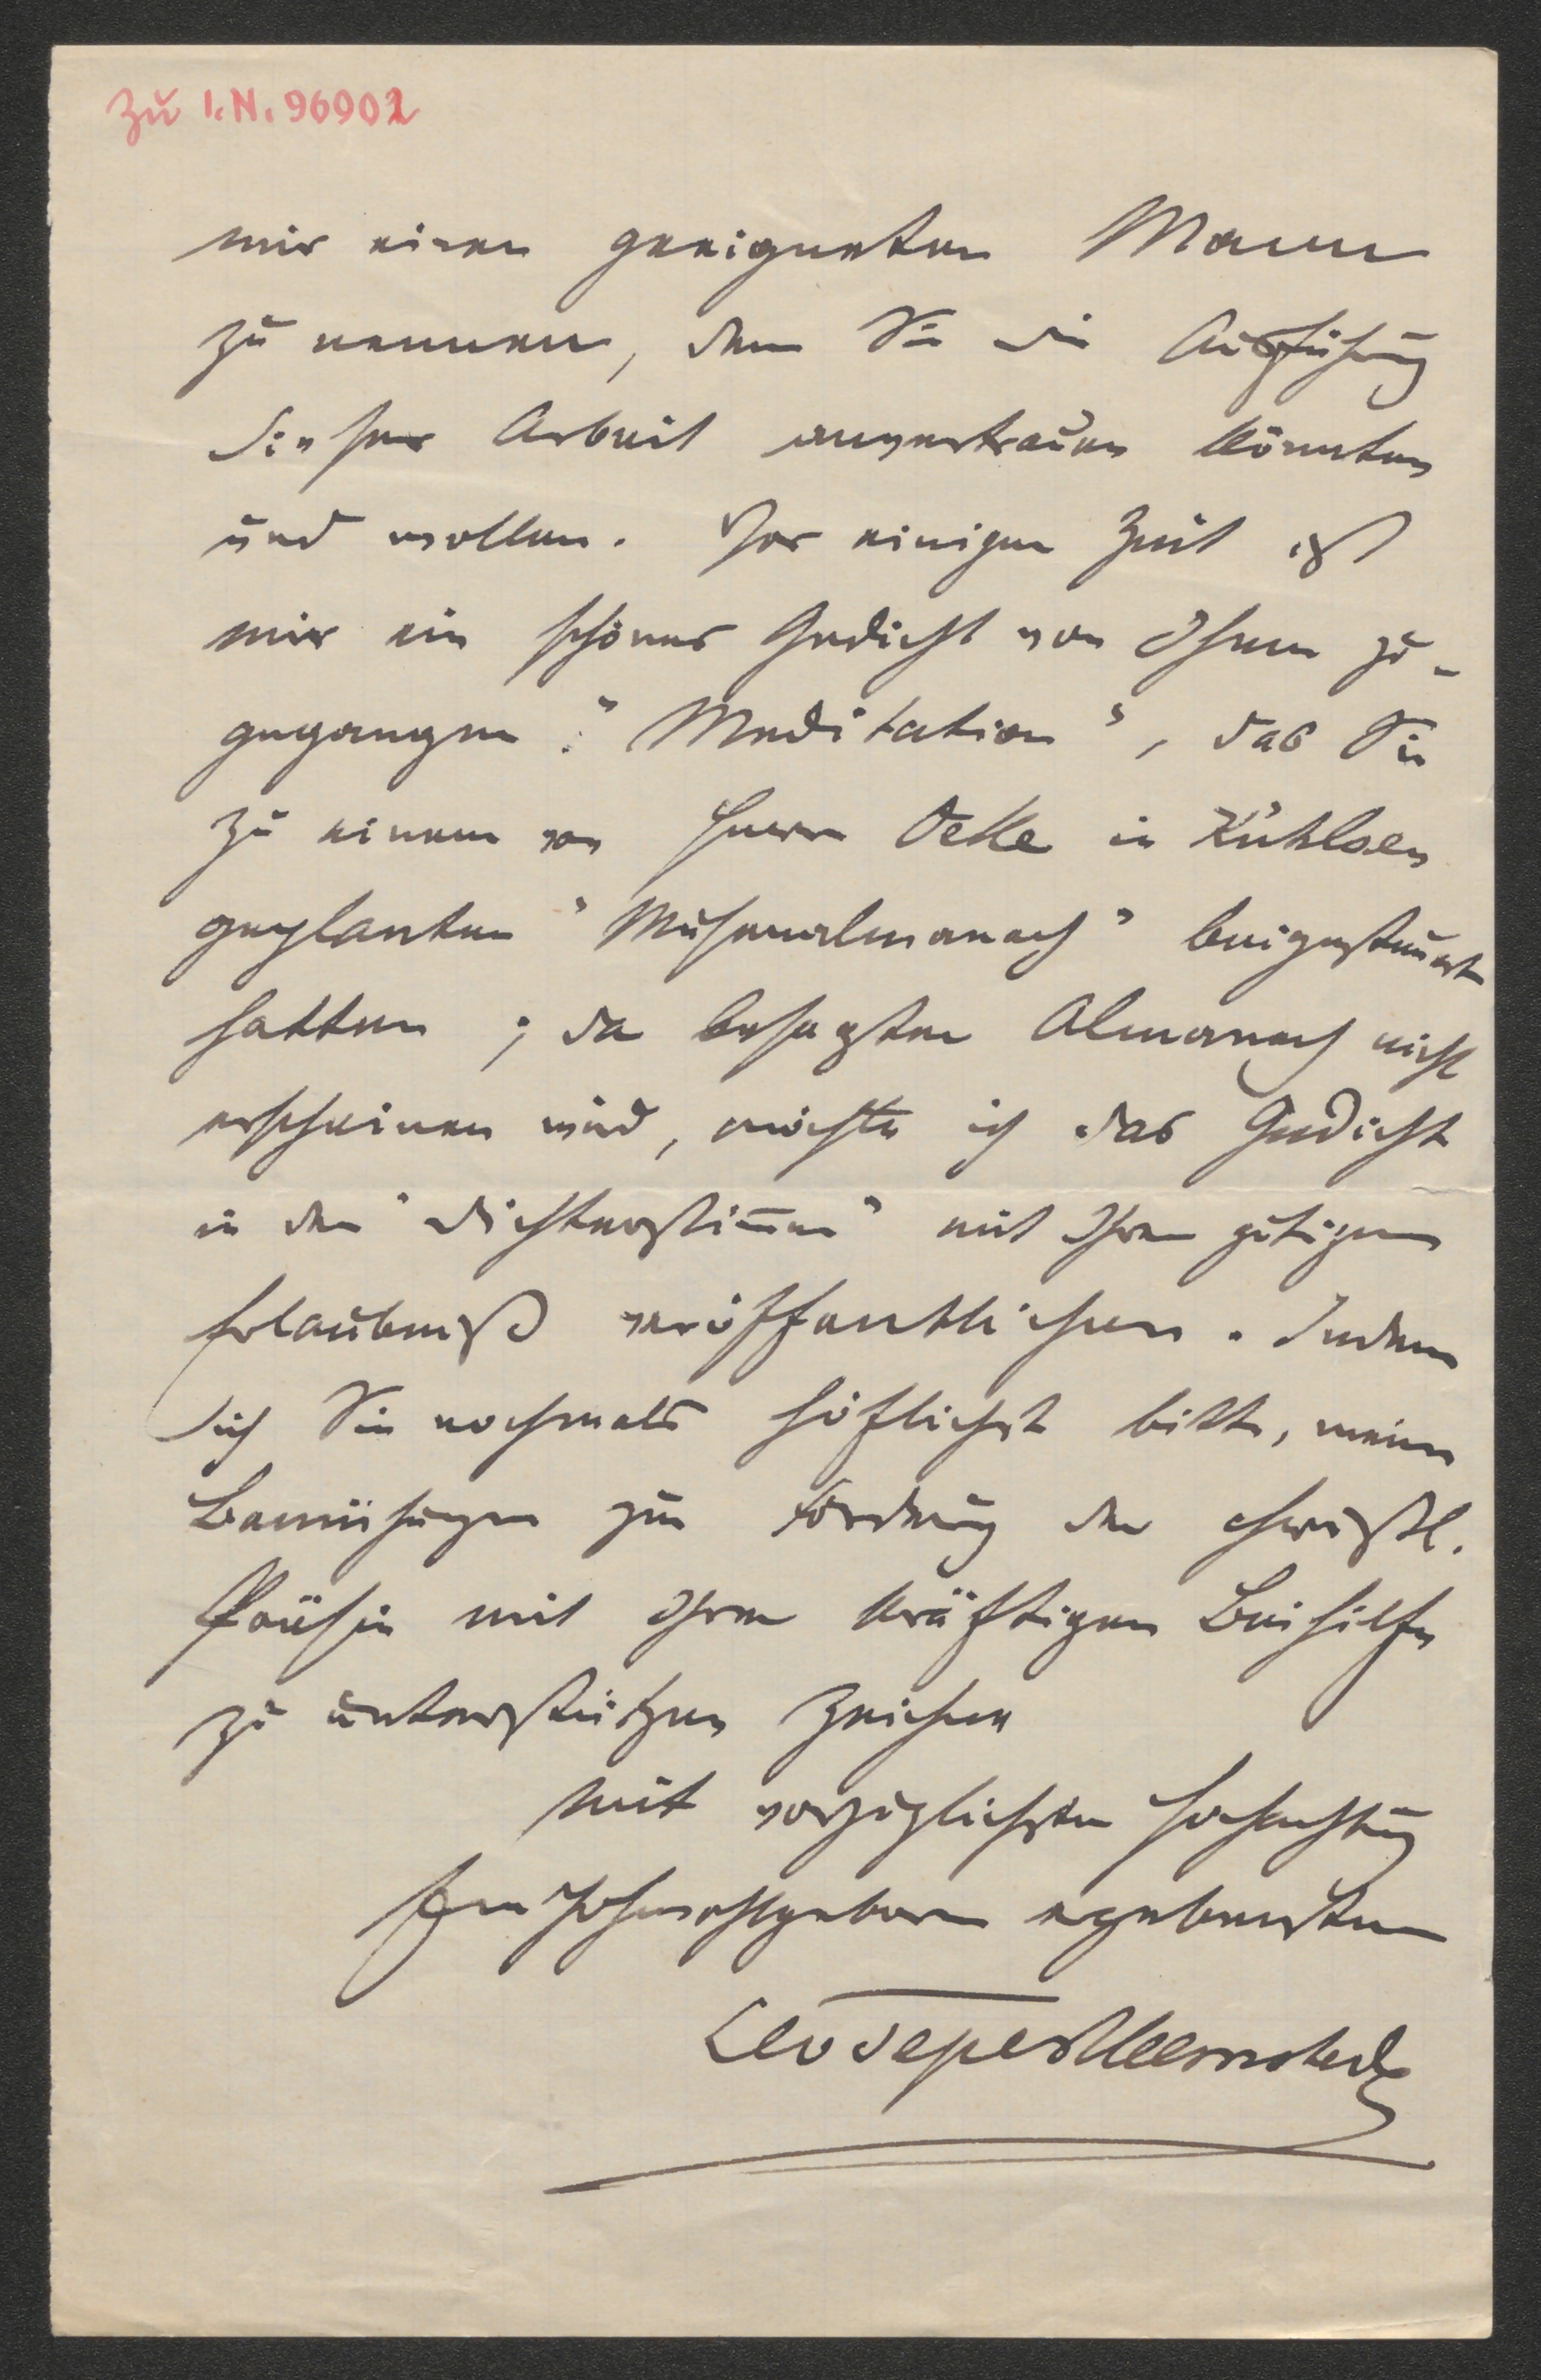 Zu I.N. 96902
mir einen geeigneten Mann
zu nennen, dem Sie die Ausführung
dieser Arbeit anvertrauen könnten
und wollen. Vor einiger Zeit ist
mir ein schönes Gedicht von Ihnen zu-
gegangen: "Meditation", das Sie
zu einem von Herrn Oeke in Kühlsen
geplanten "Musenalmanach" beigesteuert
hatten; da besagter Almanach nicht
erscheinen wird, möchte ich das Gedicht
in den "Dichterstimmen" mit Ihrer gütigen
Erlaubniß veröffentlichen. Indem
ich Sie nochmals höflichst bitte, meine
Bemühungen zur Förderung der christl.
Poësie mit Ihrer kräftigen Beihilfe
zu unterstützen zeichne
mit vorzüglichster Hochachtung
Euer Hochwohlgeboren ergebenster
Leo Tepe van Heemstede